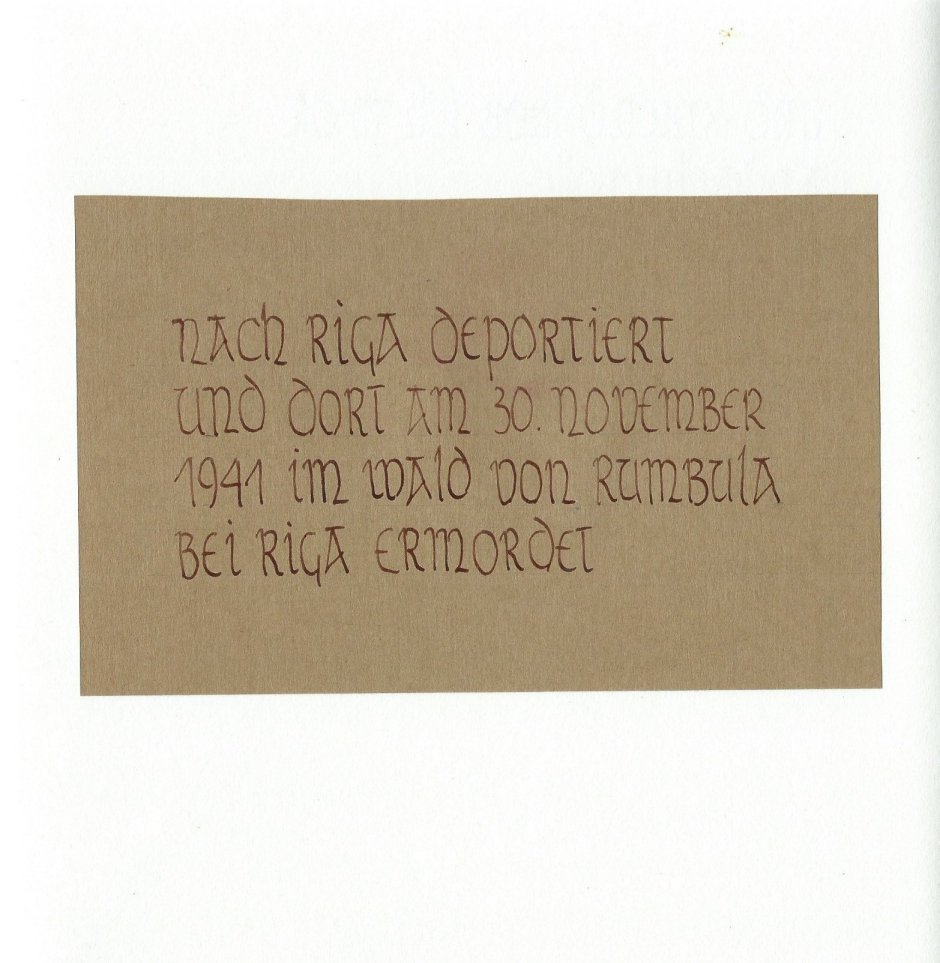 NACH RIGA DEPORTIERT
UND DORT AM 30. NOVEMBER
1941 IM WALD VON RUMBULA
BEI RIGA ERMORDET